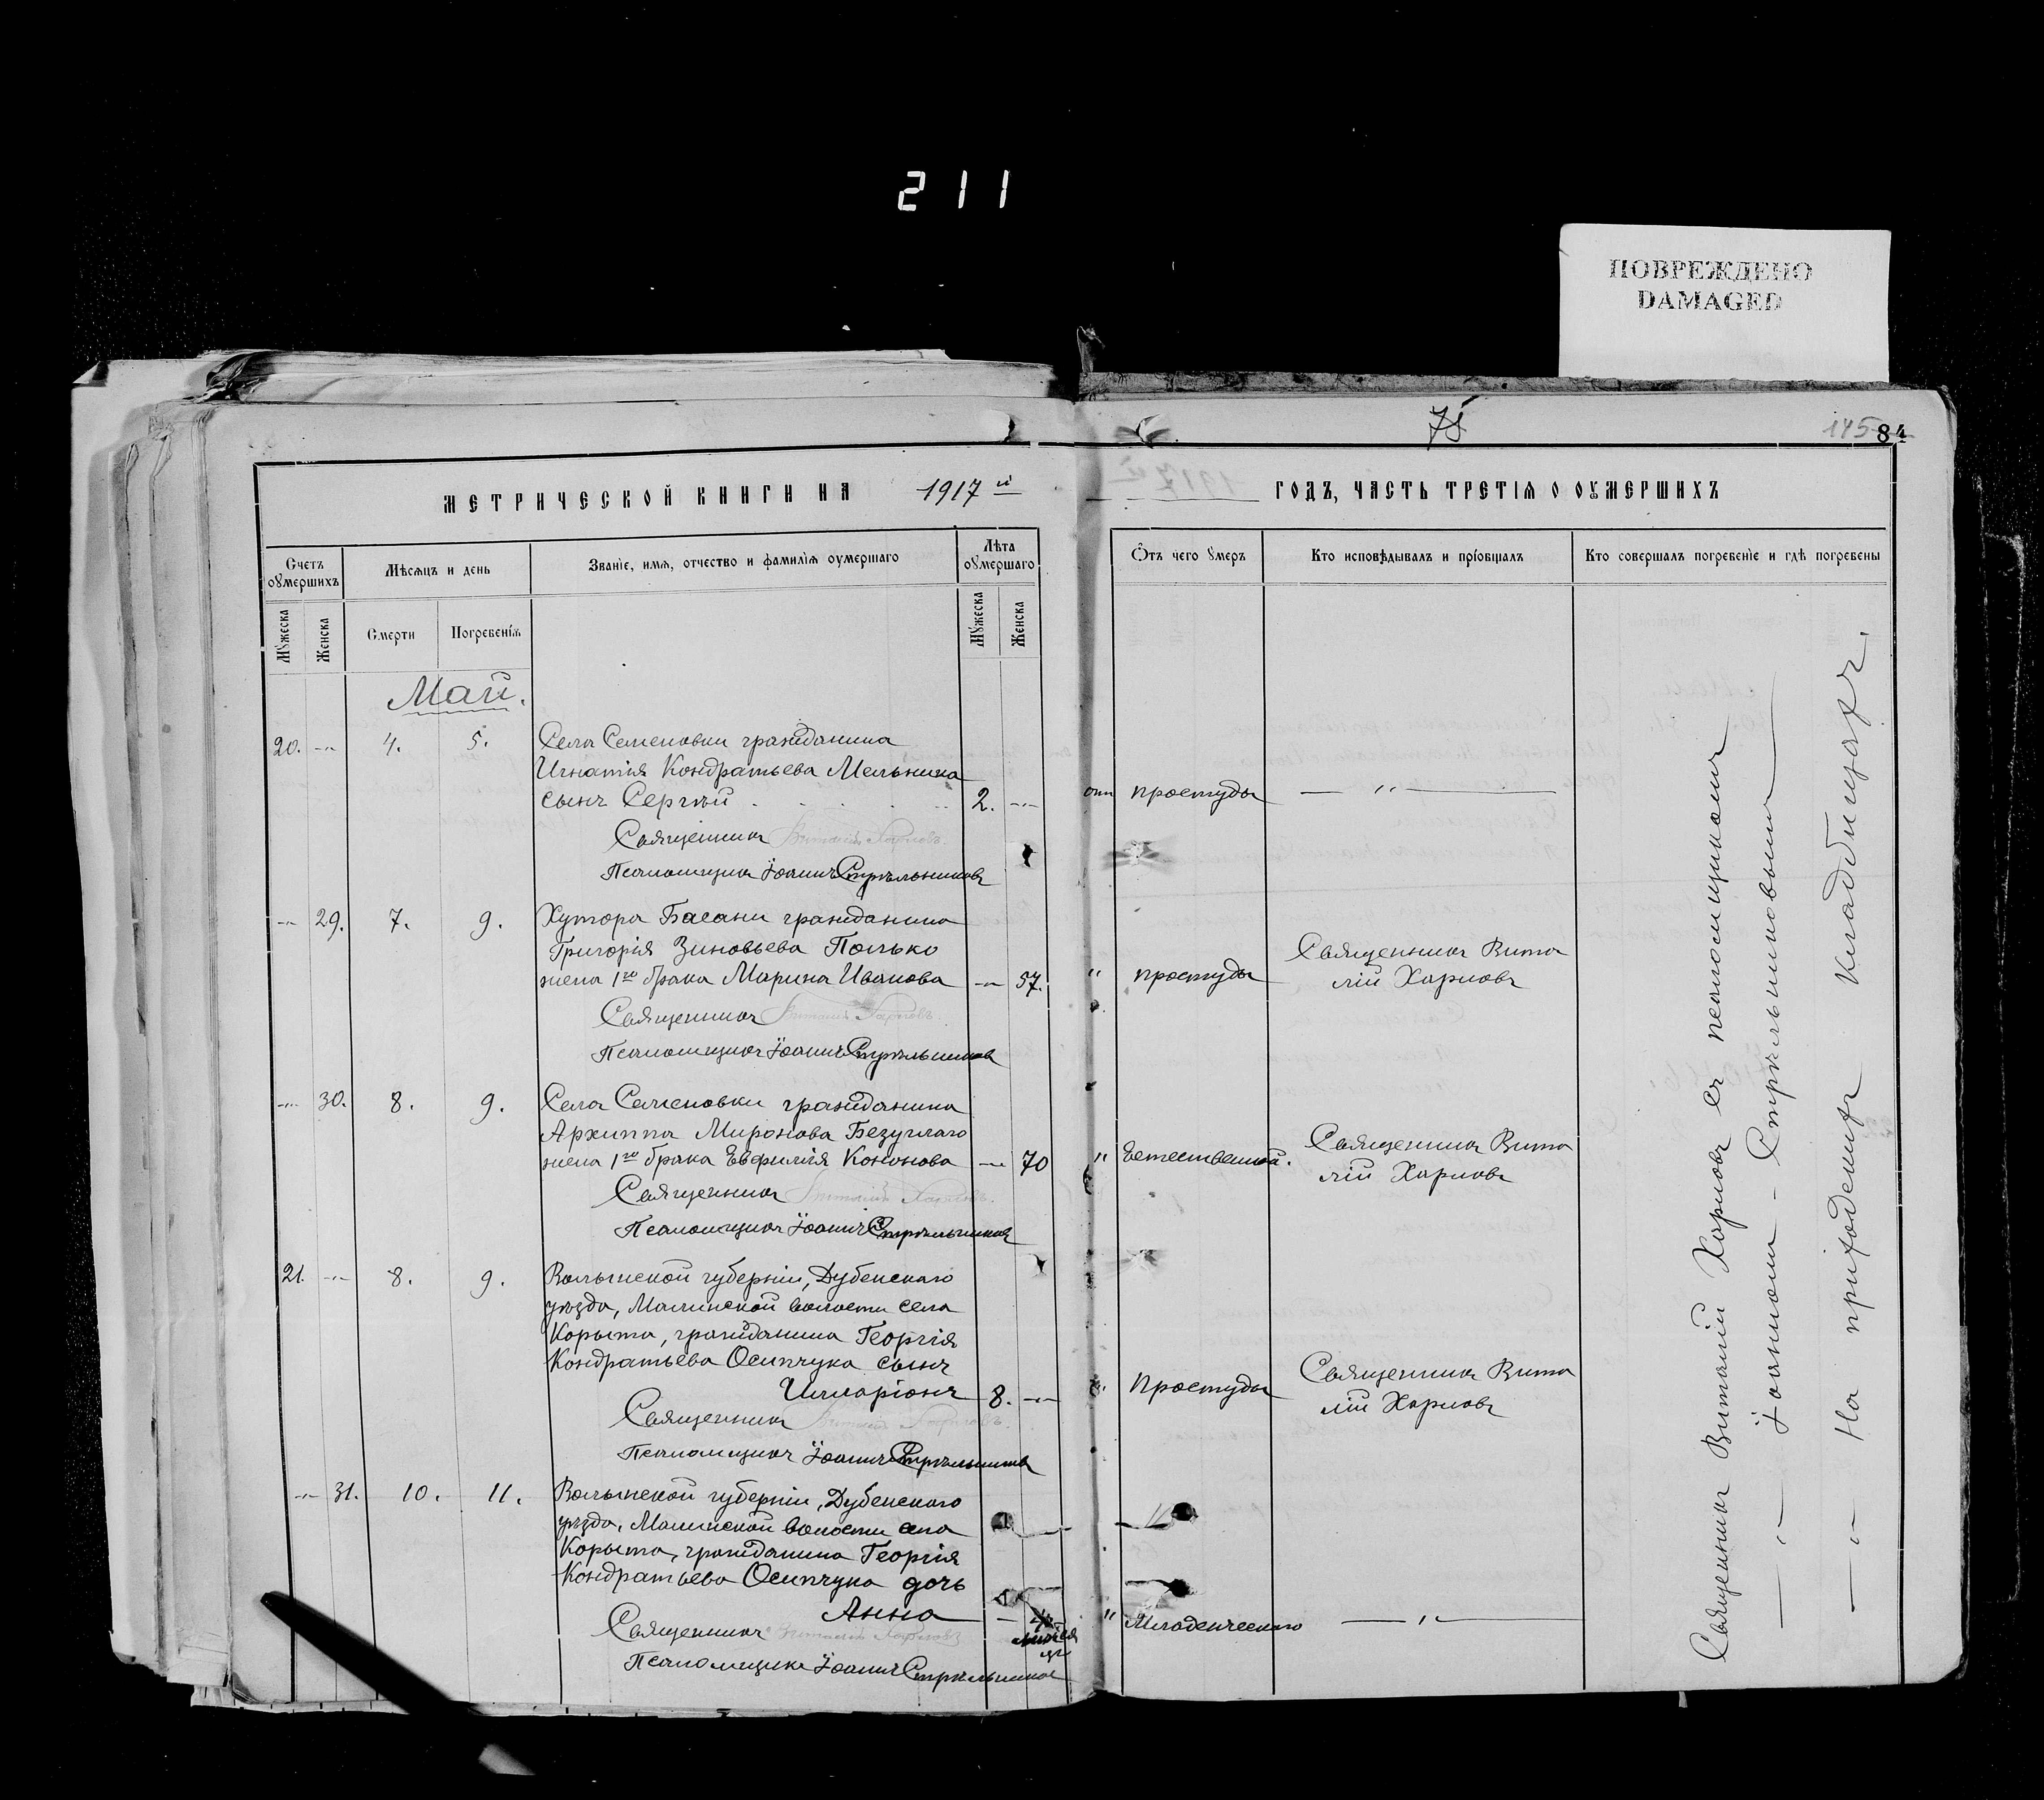 211
ПОВРЕЖДЕНО
DAMAGED
75
145
84
МЕТРИЧЕСКОЙ КНИГИ НА 1917 й
ГОДЪ, ЧАСТЬ ТРЕТІЯ О ОУМЕРШИХЪ
Счетъ оумершихъ
Мѣсяцъ и день
Званіе, имя, отчество и фамилія оумершаго
Лѣта оумершаго
Отъ чего умеръ
Кто исповѣдывалъ и пріобщалъ
Кто совершалъ погребеніе и гдѣ погребены
Мужеска
Женска
Смерти
Погребенія
Мужеска
Женска
Май.
20. -„- 4. 5. Села Семеновки гражданина
Игнатія Кондратьева Мельника
сынъ Сергѣй 2. -„- отъ простуды — „ —
Священникъ Виталій Харловъ
Псаломщикъ Іоаннъ Стрѣльниковъ
-„- 29. 7. 9. Хутора Басани гражданина
Григорія Зиновьева Полько
жена 1го брака Марина Иванова -„- 57. „ простуды Священникъ Вита
лій Харловъ
Священникъ Виталій Харловъ
Псаломщикъ Іоаннъ Стрѣльниковъ
-„- 30. 8. 9. Села Семеновки гражданина
Архиппа Миронова Безуглаго
жена 1го брака Евфимія Кононова -„- 70 „ Естественной. Священникъ Вита
лій Харловъ
Священникъ Виталій Харловъ
Псаломщикъ Іоаннъ Стрѣльниковъ
21. -„- 8. 9. Волынской губерніи, Дубенскаго
уѣзда, Малинской волости села
Корыта, гражданина Георгія
Кондратьева Осипчука сынъ
Илларіонъ 8. -„- „ Простуды Священникъ Вита
лій Харловъ
Священникъ Виталій Харловъ
Псаломщикъ Іоаннъ Стрѣльниковъ
-„- 31. 10. 11. Волынской губерніи, Дубенскаго
уѣзда, Малинской волости села
Корыта, гражданина Георгія
Кондратьева Осипчука дочь
Анна — „ Младенческаго — „ —
Священникъ Виталій Харловъ
Псаломщикъ Іоаннъ Стрѣльниковъ
Священникъ Виталій Харловъ съ псаломщикомъ
— „ — Іоанномъ - Стрѣльниковымъ —
— „ — На приходскомъ кладбищѣ.